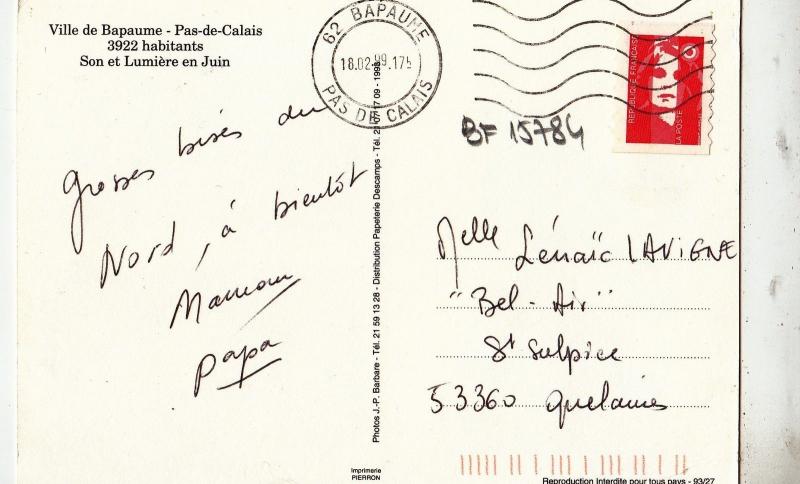 Ville de Bapaume - Pas-de-Calais
3922 habitants
Son et Lumière en Juin
Grosses bisés du
Nord, à bientôt
Maman
Papa
62 BAPAUME
18.02.99.175
PAS DE CALAIS
REPUBLIQUE FRANCAISE
LA POSTE
BF 15784
Melle Lénaïc LAVIGNE
"Bel-Air"
St Sulpice
53360 Quelaines
Photos J.-P. Barbare - Tél. 21 59 13 28 - Distribution Papeterie Descamps - Tél. 21 17 09 - 1993
Imprimerie
PIERRON
Reproduction Interdite pour tous pays - 93/27